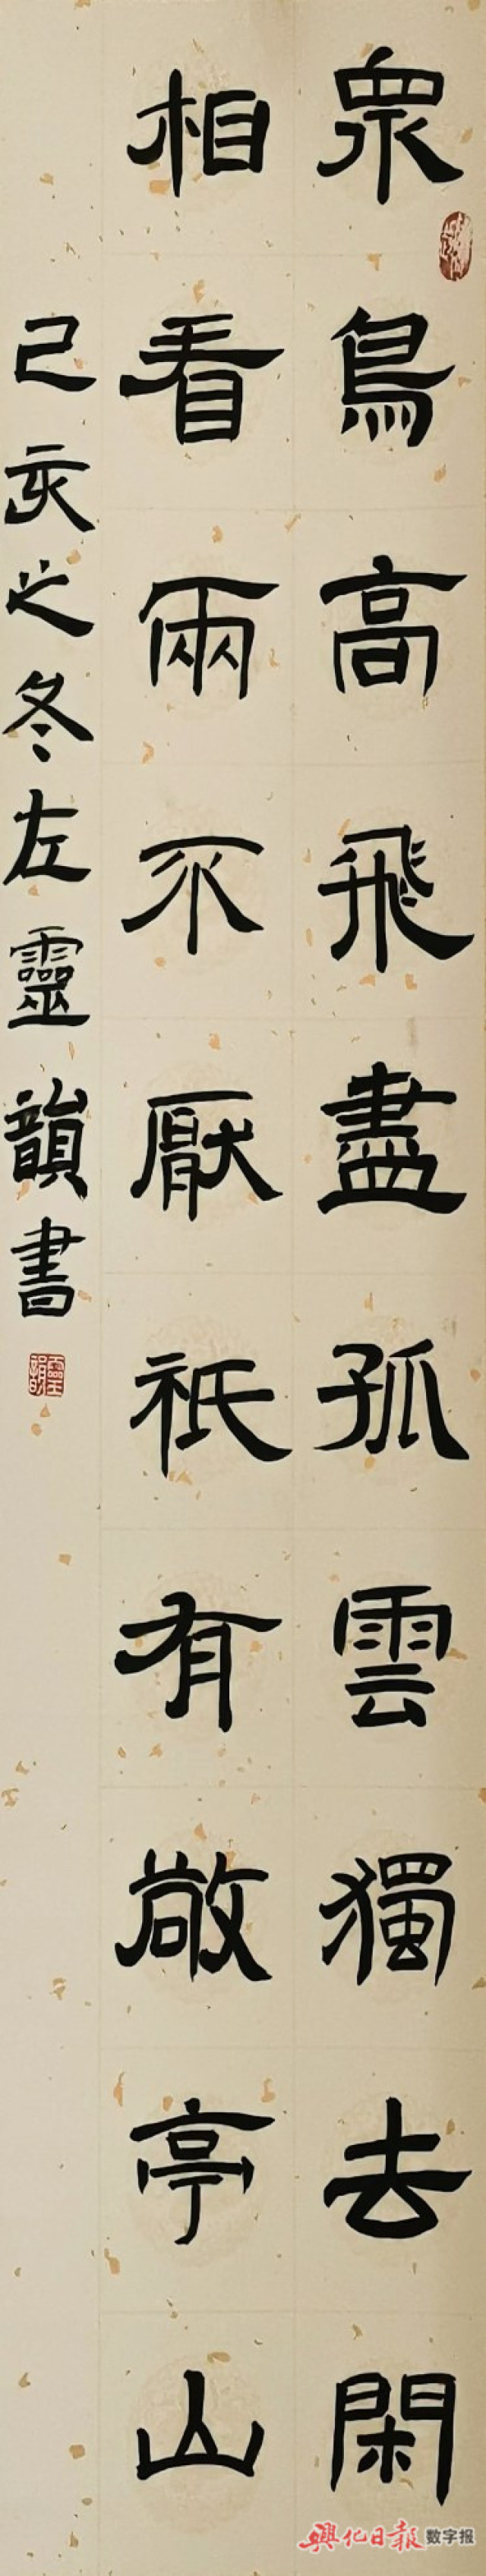 眾鳥高飛盡孤雲獨去閑
相看兩不厭祇有敬亭山
己亥之冬左靈韻書
靈韻
興化日报 数字报